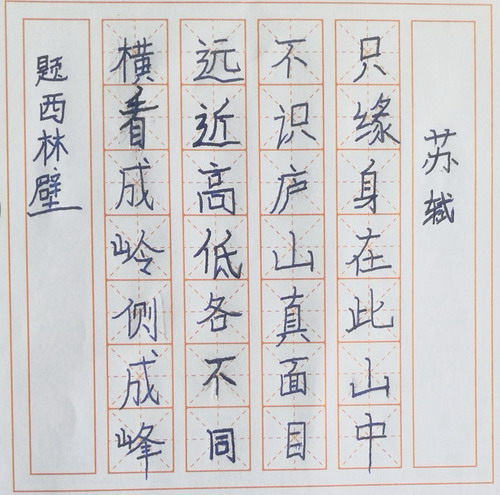 题西林壁
横看成岭侧成峰
远近高低各不同
不识庐山真面目
只缘身在此山中
苏轼